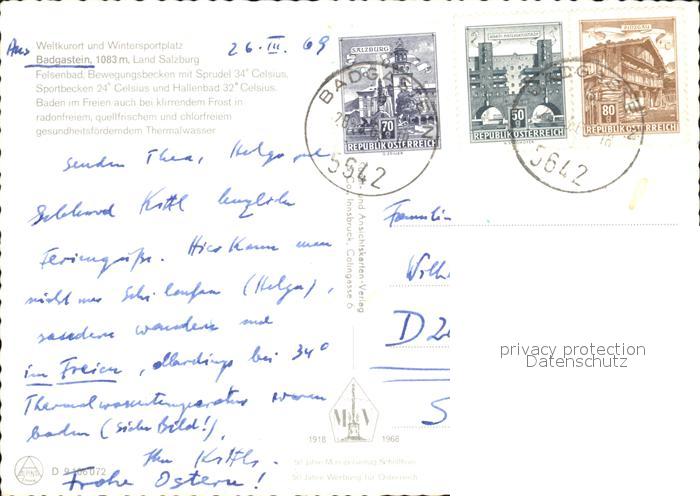 Aus
Weltkurort und Wintersportplatz
Badgastein, 1083 m, Land Salzburg
Felsenbad, Bewegungsbecken mit Sprudel 34° Celsius,
Sportbecken 24° Celsius und Hallenbad 32° Celsius.
Baden im Freien auch bei klirrendem Frost in
radonfreiem, quellfrischem und chlorfreiem
gesundheitsförderndem Thermalwasser
26. III. 69
senden Thea, Helga und
Ekkehard Kittl herzliche
Feriengrüße. Hier kann man
nicht nur Schi laufen (Helga),
sondern wandern und
im Freien, allerdings bei 34°
Thermalwassertemperatur warm
baden (siehe Bild!).
Ihre Kittls.
Frohe Ostern!
SALZBURG
70
REPUBLIK ÖSTERREICH
50
REPUBLIK ÖSTERREICH
PINZGAU
80
REPUBLIK ÖSTERREICH
BADGASTEIN
5642
BADGASTEIN
5642
und Ansichtskarten-Verlag
Innsbruck, Colingasse 6
Familie
Wilh
D 2
S
privacy protection
Datenschutz
1918
1968
D 9106072
50 Jahre Werbung für Österreich